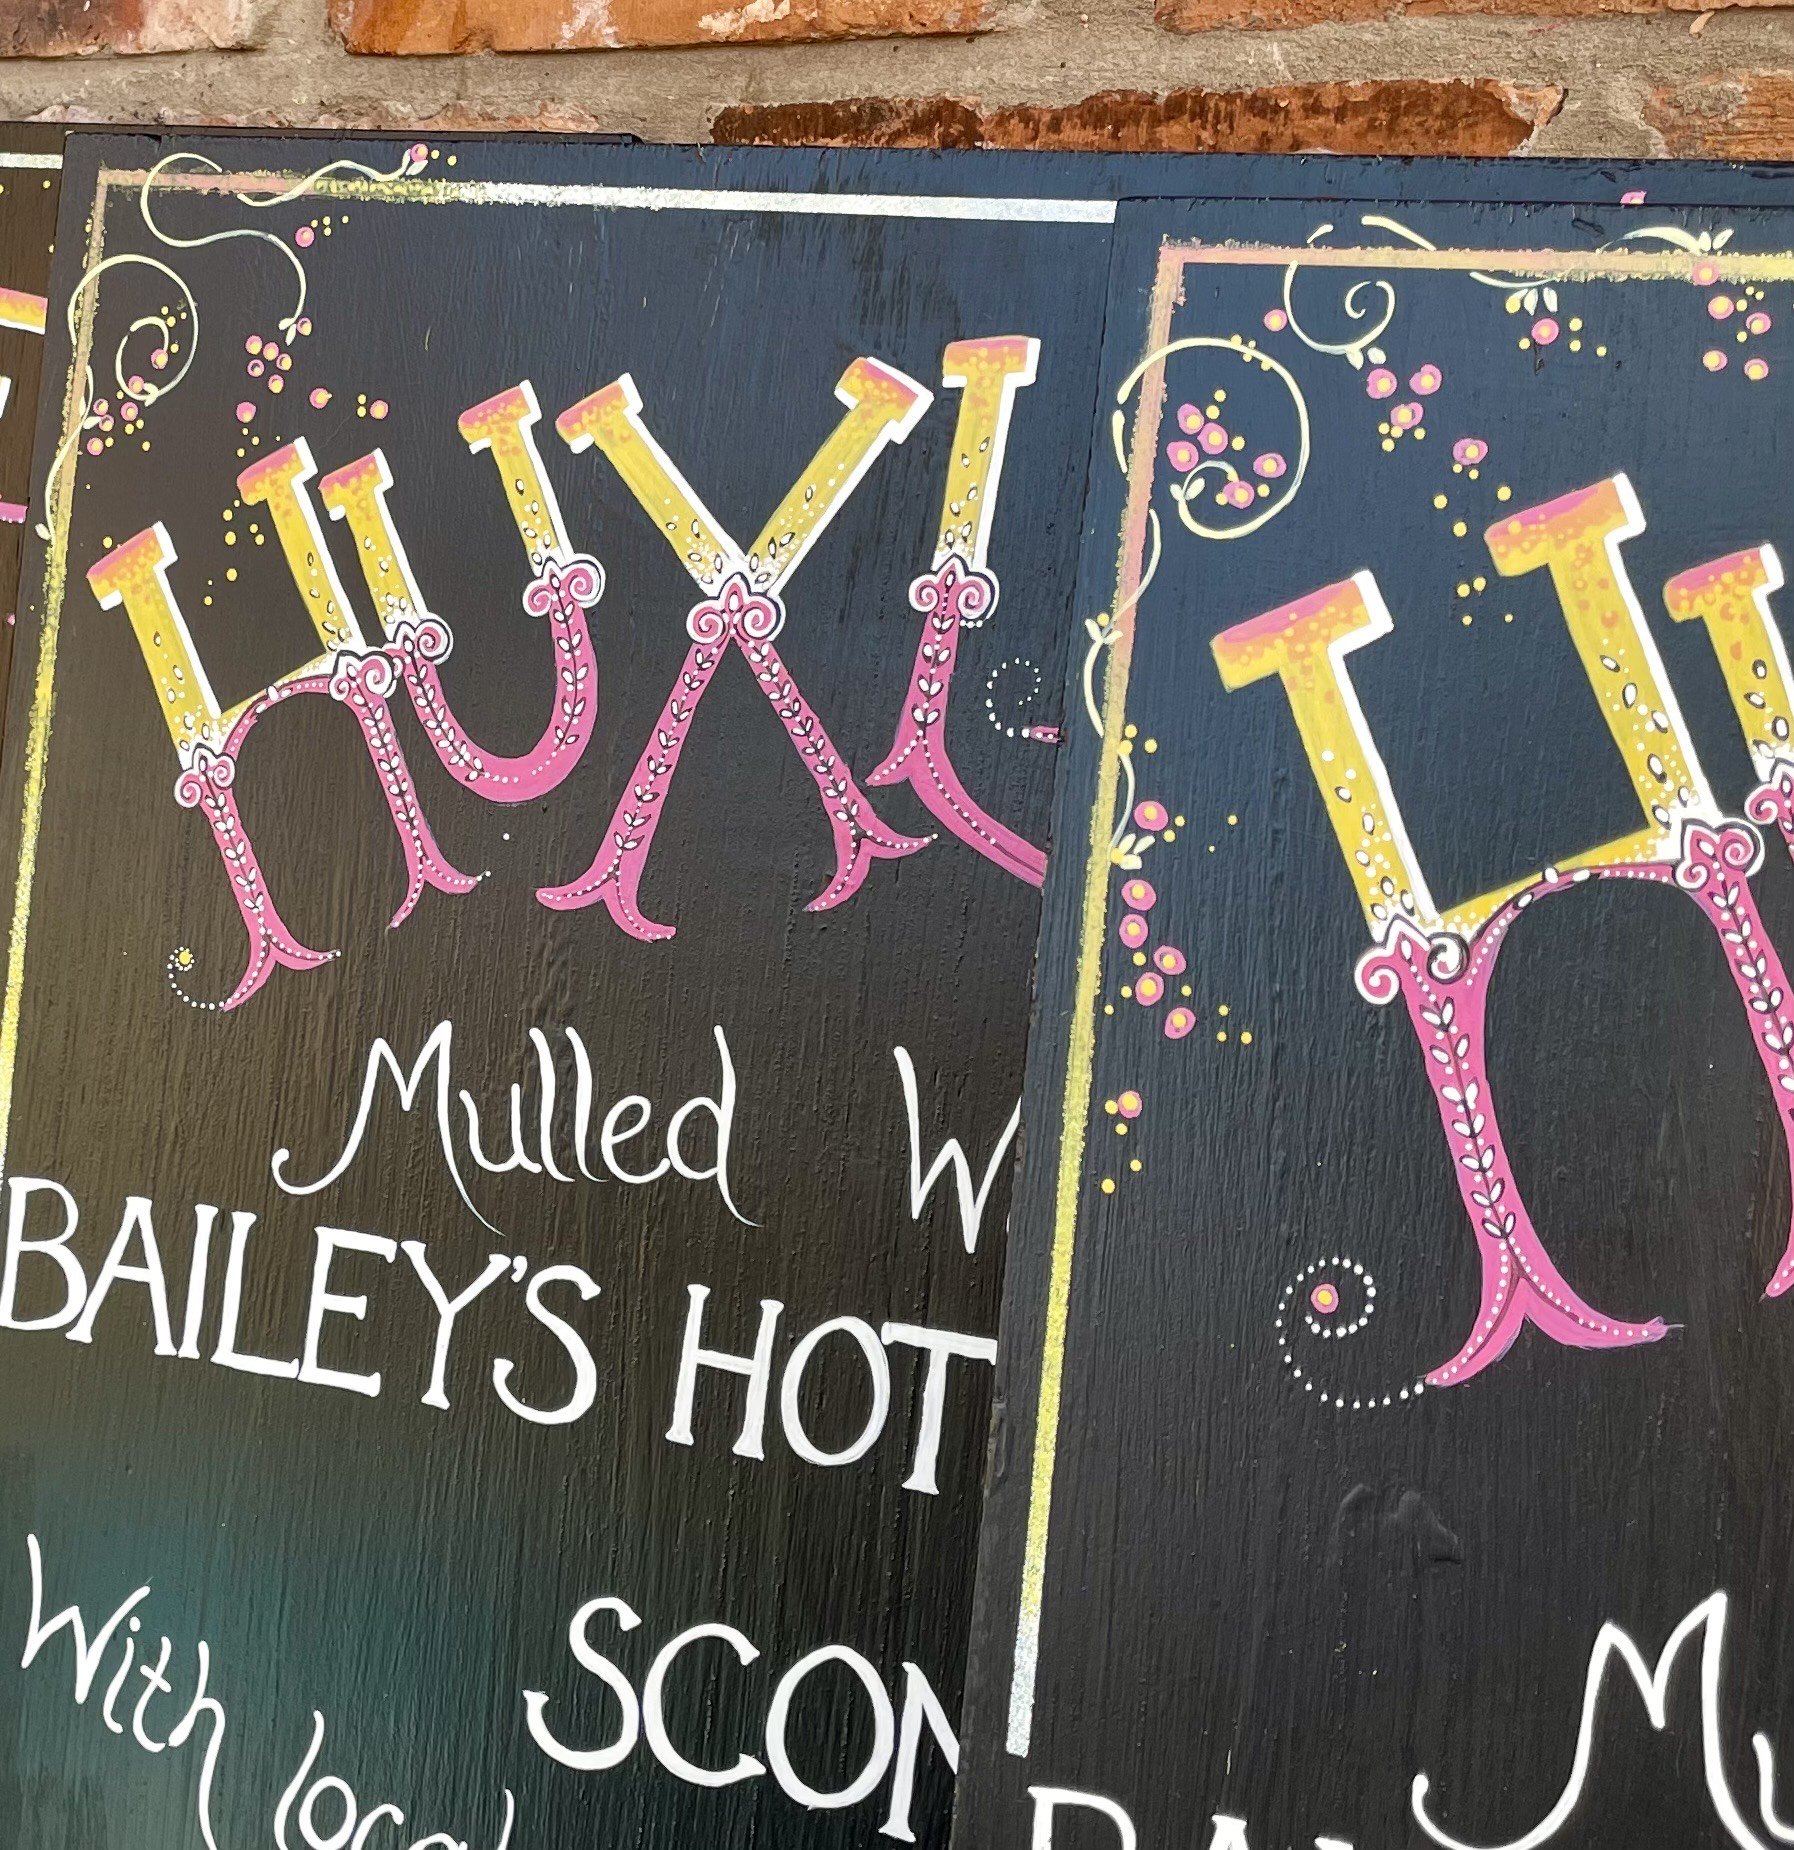 HUXL
Mulled W
BAILEY'S HOT
SCON
With local
HU
Mu
BA